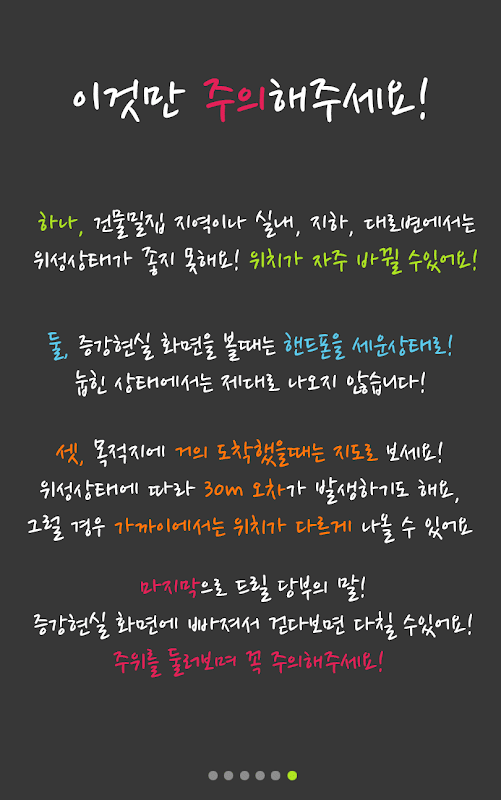 이것만 주의해주세요!
하나, 건물밀집 지역이나 실내, 지하, 대로변에서는
위성상태가 좋지 못해요! 위치가 자주 바뀔 수있어요!
둘, 증강현실 화면을 볼때는 핸드폰을 세운상태로!
눕힌 상태에서는 제대로 나오지 않습니다!
셋, 목적지에 거의 도착했을때는 지도로 보세요!
위성상태에 따라 30m 오차가 발생하기도 해요,
그럴 경우 가까이에서는 위치가 다르게 나올 수 있어요
마지막으로 드릴 당부의 말!
증강현실 화면에 빠져서 걷다보면 다칠 수있어요!
주위를 둘러보며 꼭 주의해주세요!